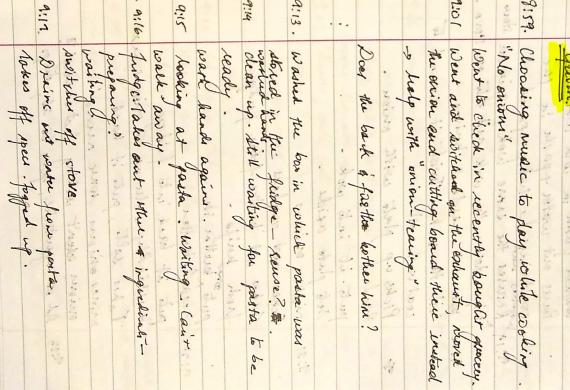 8:59. Choosing music to day while cooking.
"No onions"
Went to check in recently bought grocery.
9:01 Went and switched on the exhaust moved
the onion and cutting board there instead
→ help with "onion-tearing"
Does the back & further bother him?
9:13. Washed the box in which pasta was
stored in the fridge - sense?
washed hands
9:14 clean up. Still waiting for pasta to be
ready.
wash hands again.
9:15 looking at pasta. Waiting. Can't
walk away.
9:16. Fudge. Takes out other ingredients -
preparing?
waiting?
switches off stove
9:17. Drains out water from pasta.
takes off specs. fogged up.